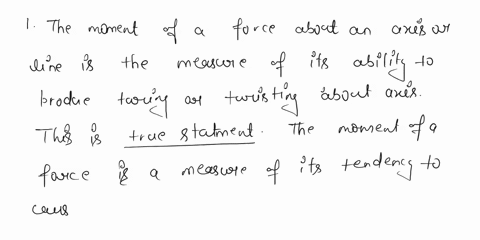 1. The moment of a force about an axis or
line is the measure of its ability to
produe twring or twisting about axis.
This is true statment. The moment of a
force is a measure of its tendency to
caus